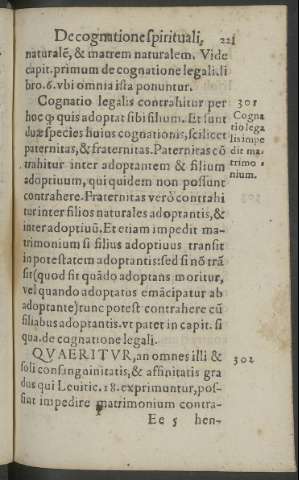 De cognatione spirituali, 221
naturalē, & matrem naturalem. Vide
capit. primum de cognatione legali. li
bro. 6. vbi omnia ista ponuntur.
Cognatio legalis contrahitur per
hoc ꝙ quis adoptat sibi filium. Et sunt
duæ species huius cognationis, scilicet
paternitas, & fraternitas. Paternitas cō
trahitur inter adoptantem & filium
adoptiuum, qui quidem non possunt
contrahere. Fraternitas verò contrahi
tur inter filios naturales adoptantis, &
inter adoptiuū. Et etiam impedit ma-
trimonium si filius adoptiuus transit
in potestatem adoptantis: sed si nō trā
sit (quod sit quādo adoptans moritur,
vel quando adoptatus emācipatur ab
adoptante) tunc potest contrahere cū
filiabus adoptantis. vt patet in capit. si
qua. de cognatione legali.
QVAERITVR, an omnes illi &
soli consinguinitatis, & affinitatis gra
dus qui Leuitic. 18. exprimuntur, pos-
sint impedire matrimonium contra-
Ee 5 hen-
301
Cogna
tio lega
lis impe
dit ma-
trimo-
nium.
302